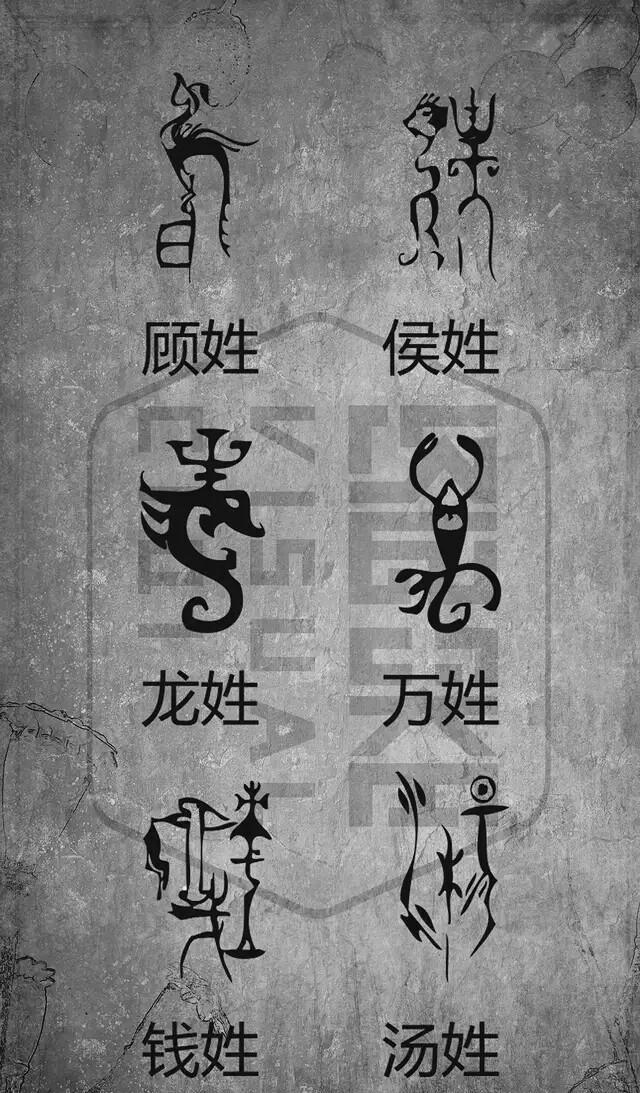 顾姓 侯姓
龙姓 万姓
钱姓 汤姓